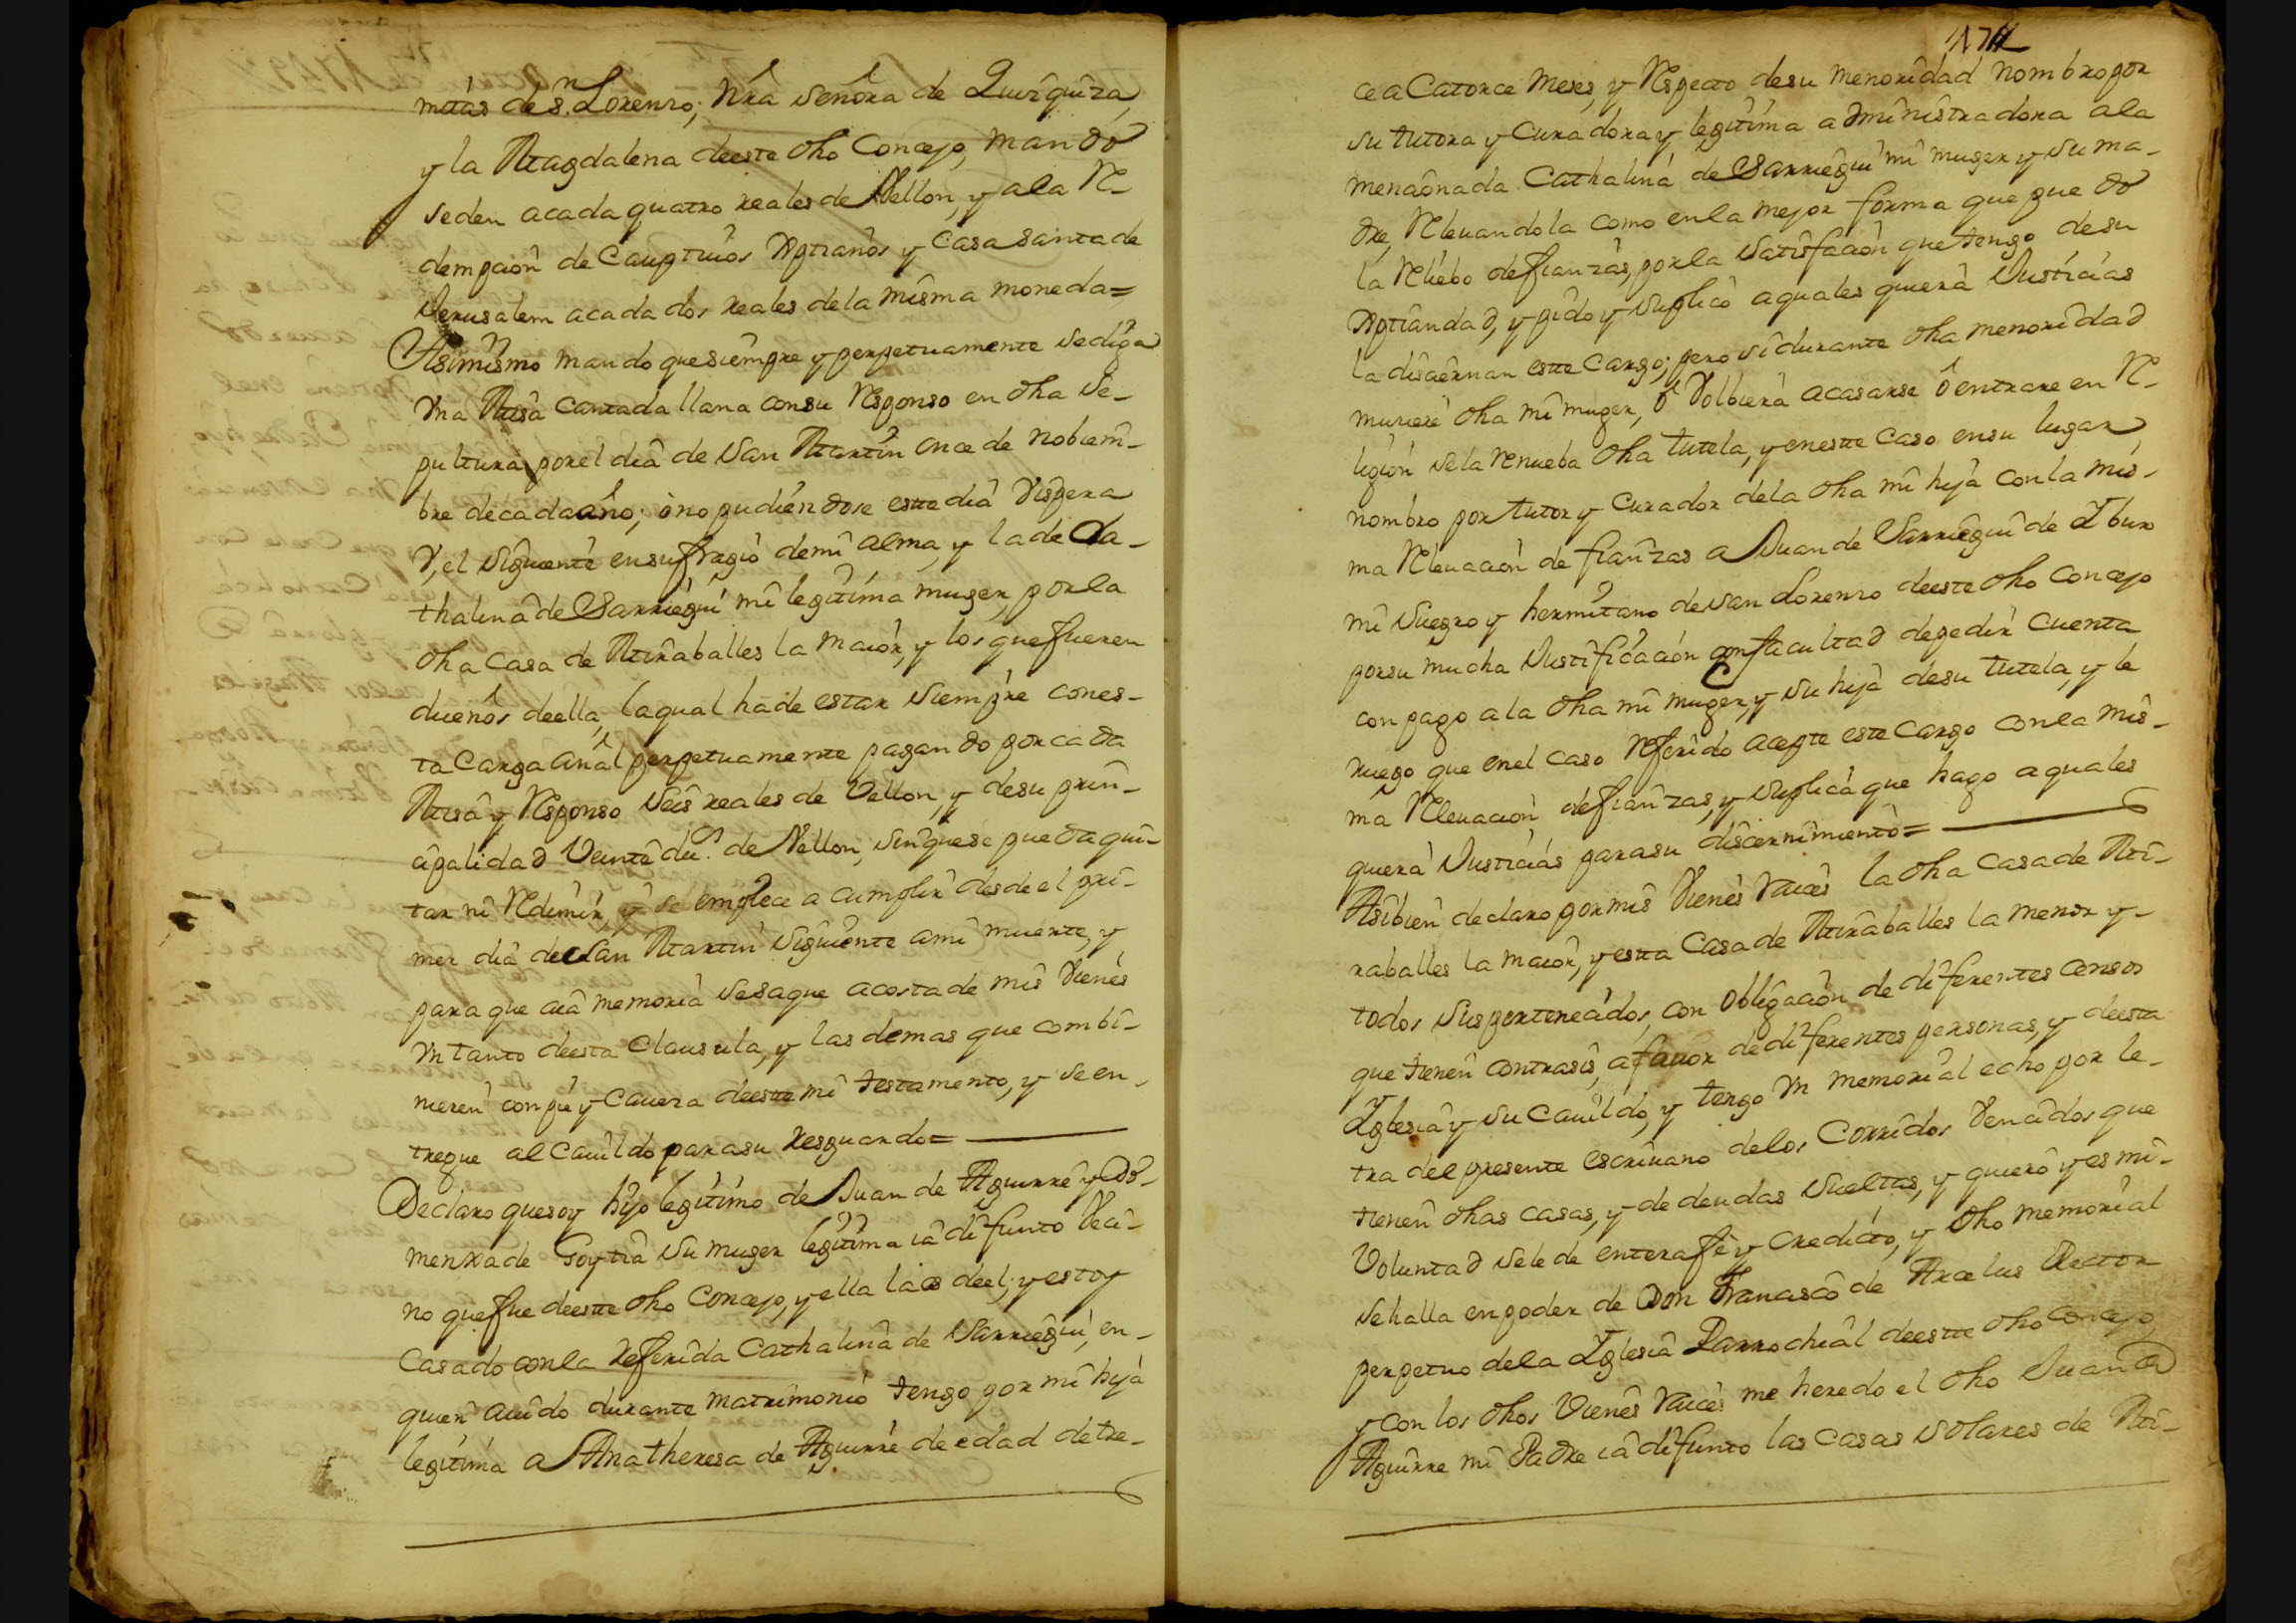 mitas de Sn. Lorenzo, Nra Señora de Quizquiza,
y la Magdalena deeste dho Concejo, mando
seden acada quatro reales de Vellon, y ala Re-
dempcion de Captiuos Xptianos y Casa Santa de
Jerusalem acada dos reales dela misma moneda=
Asimismo mando que siempre y perpetuamente sediga
Vna Misa cantada llana consu Responso en dha Se-
pultura porel dia de San Martin once de nobiem-
bre decadaaño; ò no pudiendose este dia Vispera
V, el siguiente ensufragio demi alma, y la de Ca-
thalina de Sarriegui mi legitima muger, por la
dha Casa de Miraballes la maior, y los quefueren
dueños deella, laqual hade estar siempre cones-
ta Carga añal perpetuamente pagando por cada
Misa y Responso seis reales de Vellon, y desu prin-
cipalidad Veinte du.s de Vellon, sinquese pueda qui-
tar ni Redimir, y se empiece a cumplir desde el pri-
mer dia de San Martin siguiente ami muerte, y
para que aia memoria sesaque acosta de mis Vienes
Vn tanto deesta Clausula, y las demas que combi-
nieren con pie y Cauera deeste mi testamento, y se en-
tregue al Cauildo parasu resguardo=
Declaro quesoy hijo legitimo de Juan de Aguirre y Do-
menxa de Goytia su muger legitima ia difunto Veci-
no quefue deeste dho Concejo, y ella lo es deel; y estoy
Casado conla referida Cathalina de Sarriegui, en-
quien auido durante matrimonio tengo por mi hija
legitima a Ana theresa de Aguirre de edad de tre-
1711
ce a Catorce meses, y Respecto desu menoridad nombro por
su tutora y Curadora y legitima administradora ala
mencionada Cathalina de Sarriegui mi muger y su ma-
dre, Releuandola como enla mejor forma que puedo
la Reliebo defianzas, porla satisfacion quetengo desu
Xptiandad, y pido y suplico aquales quiera Justicias
la disciernan este Cargo; pero si durante dha menoridad
muriere dha mi muger, ò Volbiera acasarse ò entrare en Re-
ligion sela Renueba dha tutela, y eneste Caso ensu lugar
nombro por tutor y Curador dela dha mi hija conla mis-
ma Releuacion de fianzas a Juan de Sarriegui de Ybur
mi Suegro y hermitano desan Lorenzo deeste dho Concejo
porsu mucha Justificacion con facultad depedir Cuenta
con pago ala dha mi muger, y su hija desu tutela, y le
ruego que enel caso referido acepte este Cargo conla mis-
ma Releuacion defianzas, y suplica que hago aquales
quiera Justicias parasu discernimiento=
Asibien declaro por mis Vienes raices la dha Casa de Mi-
raballes la maior, y esta Casa de Miraballes la menor y-
todos suspertenecidos, con obligacion de diferentes censos
que tienen contrasi, afauor dediferentes personas, y deesta
Yglesia y su Cauildo, y tengo Vn memorial echo por le-
tra del presente escriuano delos Corridos Vencidos que
tienen dhas casas, y de deudas sueltas, y quiero y es mi-
Voluntad sele de enterafè y Credicto, y dho memorial
sehalla enpoder de Don Francisco de Arcelus Rector
perpetuo dela Yglesia Parrochial deeste dho Concejo,
y con los dhos Vienes raices me heredo el dho Juan de
Aguirre mi Padre ia difunto las casas solares de Mi-